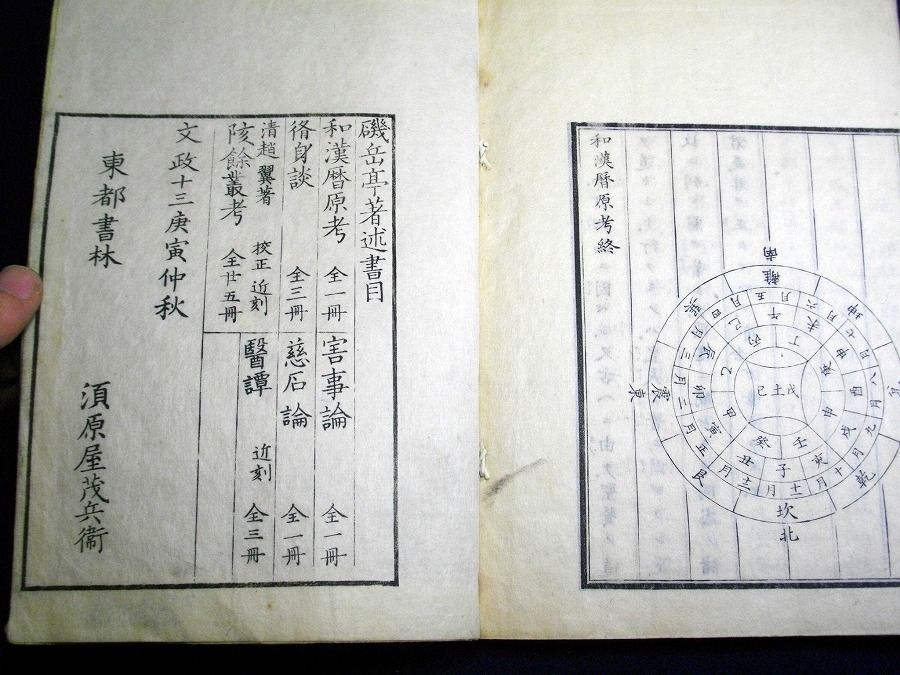 和漢暦原考終
南
離
坤
乾
坎
北
艮
東
震
巽
五月
六月
七月
八月
九月
十月
十一月
十二月
正月
三月
四月
午
未
申
酉
戌
亥
子
丑
寅
卯
辰
巳
丙
丁
庚
壬
癸
甲
乙
戊土己
磯岳亭著述書目
和漢暦原考 全一冊
害事論 全一冊
脩身談 全三冊
慈石論 全一冊
清趙翼著
陔餘叢考 校正近刻 全廿五冊
醫譚 近刻 全三冊
文政十三庚寅仲秋
東都書林 須原屋茂兵衞